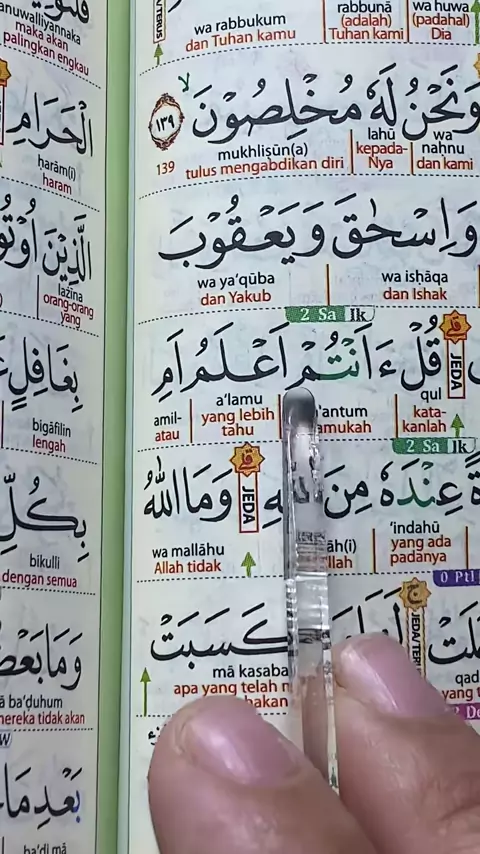 wa rabbukum rabbunā wa huwa
dan Tuhan kamu (adalah) Tuhan kami (padahal) Dia
وَنَحْنُ لَهٗ مُخْلِصُوْنَ ۙ ١٣٩
139 mukhliṣūn(a) lahū wa naḥnu
tulus mengabdikan diri kepada-Nya dan kami
وَاِسْحٰقَ وَيَعْقُوْبَ
wa ya'qūba wa isḥāqa
dan Yakub dan Ishak
2 Sa Ik
قُلْ ءَاَنْتُمْ اَعْلَمُ اَمِ
JEDA
amil- a'lamu 'antum qul
atau yang lebih tahu kata-kanlah
2 Sa Ik
عِنْدَهٗ مِنَ اللّٰهِ وَمَا اللّٰهُ
JEDA
wa mallāhu 'indahū
Allah tidak yang ada padanya
كَسَبَتْ
mā kasaba
apa yang telah
الْحَرَامِ
ḥarām(i)
haram
maka akan
palingkan engkau
الَّذِيْنَ
lażīna
orang-orang yang
بِغَافِلٍ
bigāfilin
lengah
بِكُلِّ
bikulli
dengan semua
ba'ḍuhum
mereka tidak akan
بَعْدِ مَا
ba'di mā